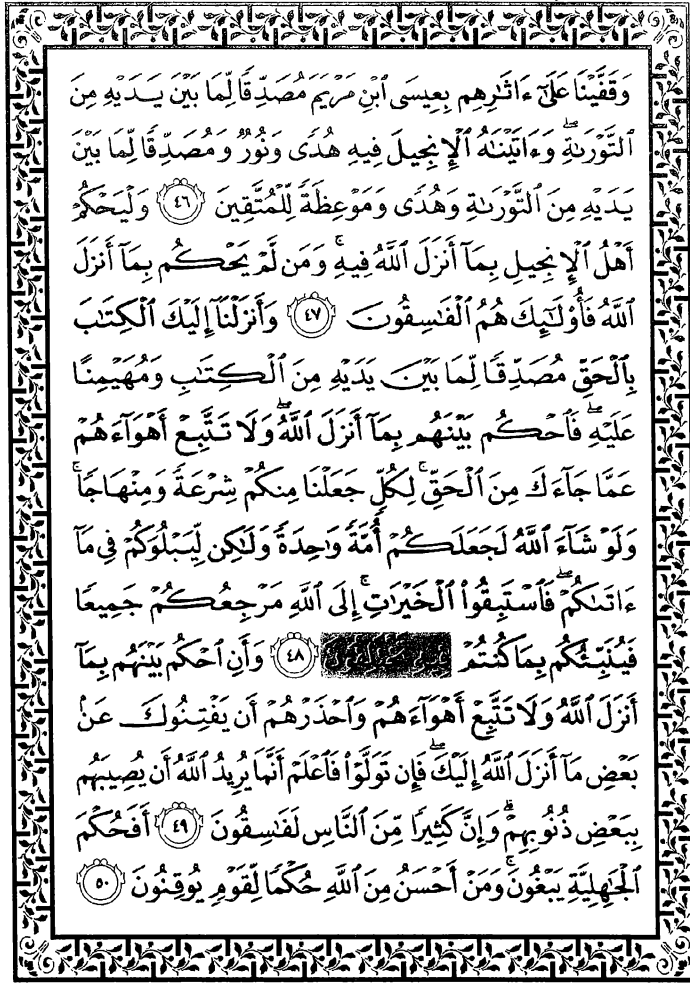 وَقَفَّيْنَا عَلَىٰٓ ءَاثَٰرِهِم بِعِيسَى ٱبْنِ مَرْيَمَ مُصَدِّقًا لِّمَا بَيْنَ يَدَيْهِ مِنَ
ٱلتَّوْرَىٰةِۖ وَءَاتَيْنَٰهُ ٱلْإِنجِيلَ فِيهِ هُدًى وَنُورٌ وَمُصَدِّقًا لِّمَا بَيْنَ
يَدَيْهِ مِنَ ٱلتَّوْرَىٰةِ وَهُدًى وَمَوْعِظَةً لِّلْمُتَّقِينَ ٤٦ وَلْيَحْكُمْ
أَهْلُ ٱلْإِنجِيلِ بِمَآ أَنزَلَ ٱللَّهُ فِيهِۚ وَمَن لَّمْ يَحْكُم بِمَآ أَنزَلَ
ٱللَّهُ فَأُو۟لَٰٓئِكَ هُمُ ٱلْفَٰسِقُونَ ٤٧ وَأَنزَلْنَآ إِلَيْكَ ٱلْكِتَٰبَ
بِٱلْحَقِّ مُصَدِّقًا لِّمَا بَيْنَ يَدَيْهِ مِنَ ٱلْكِتَٰبِ وَمُهَيْمِنًا
عَلَيْهِۖ فَٱحْكُم بَيْنَهُم بِمَآ أَنزَلَ ٱللَّهُۖ وَلَا تَتَّبِعْ أَهْوَآءَهُمْ
عَمَّا جَآءَكَ مِنَ ٱلْحَقِّۚ لِكُلٍّ جَعَلْنَا مِنكُمْ شِرْعَةً وَمِنْهَاجًاۚ
وَلَوْ شَآءَ ٱللَّهُ لَجَعَلَكُمْ أُمَّةً وَٰحِدَةً وَلَٰكِن لِّيَبْلُوَكُمْ فِى مَآ
ءَاتَىٰكُمْۖ فَٱسْتَبِقُوا۟ ٱلْخَيْرَٰتِۚ إِلَى ٱللَّهِ مَرْجِعُكُمْ جَمِيعًا
فَيُنَبِّئُكُم بِمَا كُنتُمْ ٤٨ وَأَنِ ٱحْكُم بَيْنَهُم بِمَآ
أَنزَلَ ٱللَّهُ وَلَا تَتَّبِعْ أَهْوَآءَهُمْ وَٱحْذَرْهُمْ أَن يَفْتِنُوكَ عَنۢ
بَعْضِ مَآ أَنزَلَ ٱللَّهُ إِلَيْكَۖ فَإِن تَوَلَّوْا۟ فَٱعْلَمْ أَنَّمَا يُرِيدُ ٱللَّهُ أَن يُصِيبَهُم
بِبَعْضِ ذُنُوبِهِمْۗ وَإِنَّ كَثِيرًا مِّنَ ٱلنَّاسِ لَفَٰسِقُونَ ٤٩ أَفَحُكْمَ
ٱلْجَٰهِلِيَّةِ يَبْغُونَۚ وَمَنْ أَحْسَنُ مِنَ ٱللَّهِ حُكْمًا لِّقَوْمٍ يُوقِنُونَ ٥٠